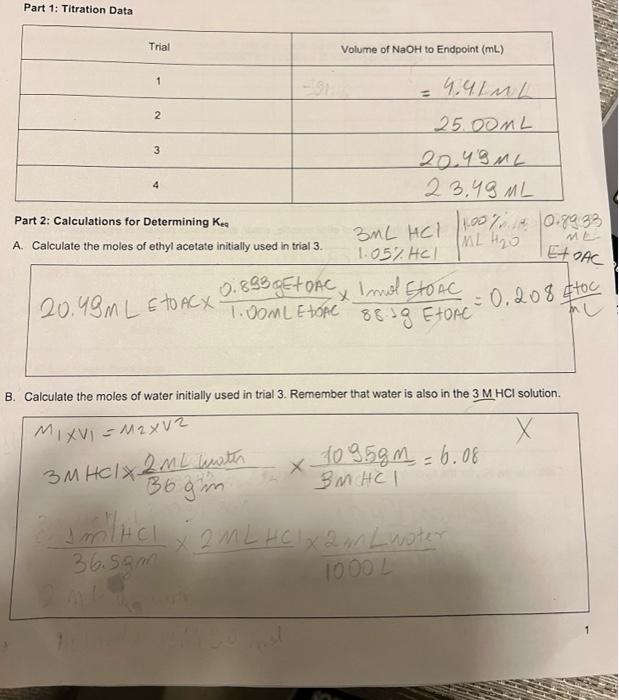 Part 1: Titration Data
Trial
Volume of NaOH to Endpoint (mL)
1
= 4.41mL
2
25.00mL
3
20.49mL
4
23.49mL
Part 2: Calculations for Determining Keq
3mL HCl
1.05% HCl
1.00%
mL H2O
0.8933
mL
EtOAC
A. Calculate the moles of ethyl acetate initially used in trial 3.
20.49mL EtOAC x 0.893gEtOAC / 1.00mL EtOAC x 1mol EtOAC / 88.1g EtOAC = 0.208 EtOC / mL
B. Calculate the moles of water initially used in trial 3. Remember that water is also in the 3 M HCl solution.
M1XV1 = M2XV2
X
3M HCl x 2mL water / 36 gm x 10958m / 3M HCl = 6.08
1mlHCl / 36.5gm x 2MLHCl x 2mLwater / 1000L
1